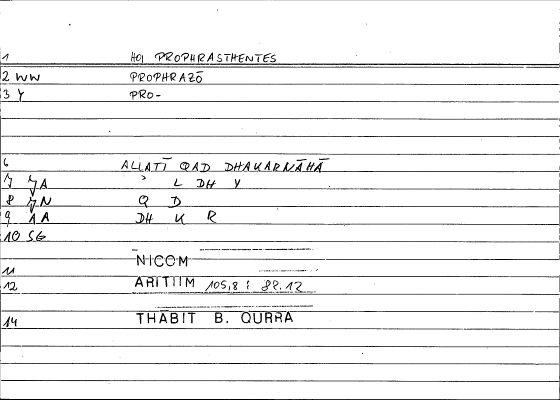 1 HOI PROPHRASTHENTES
2 WW PROPHRAZŌ
3 Y PRO-
6 ALLATĪ QAD DHAKARNĀHĀ
7 JA ʾ L DH Y
8 JN Q D
9 AA DH K R
10 SG
11 NICOM
12 ARITIIM 105,8 : 88.12
14 THĀBIT B. QURRA